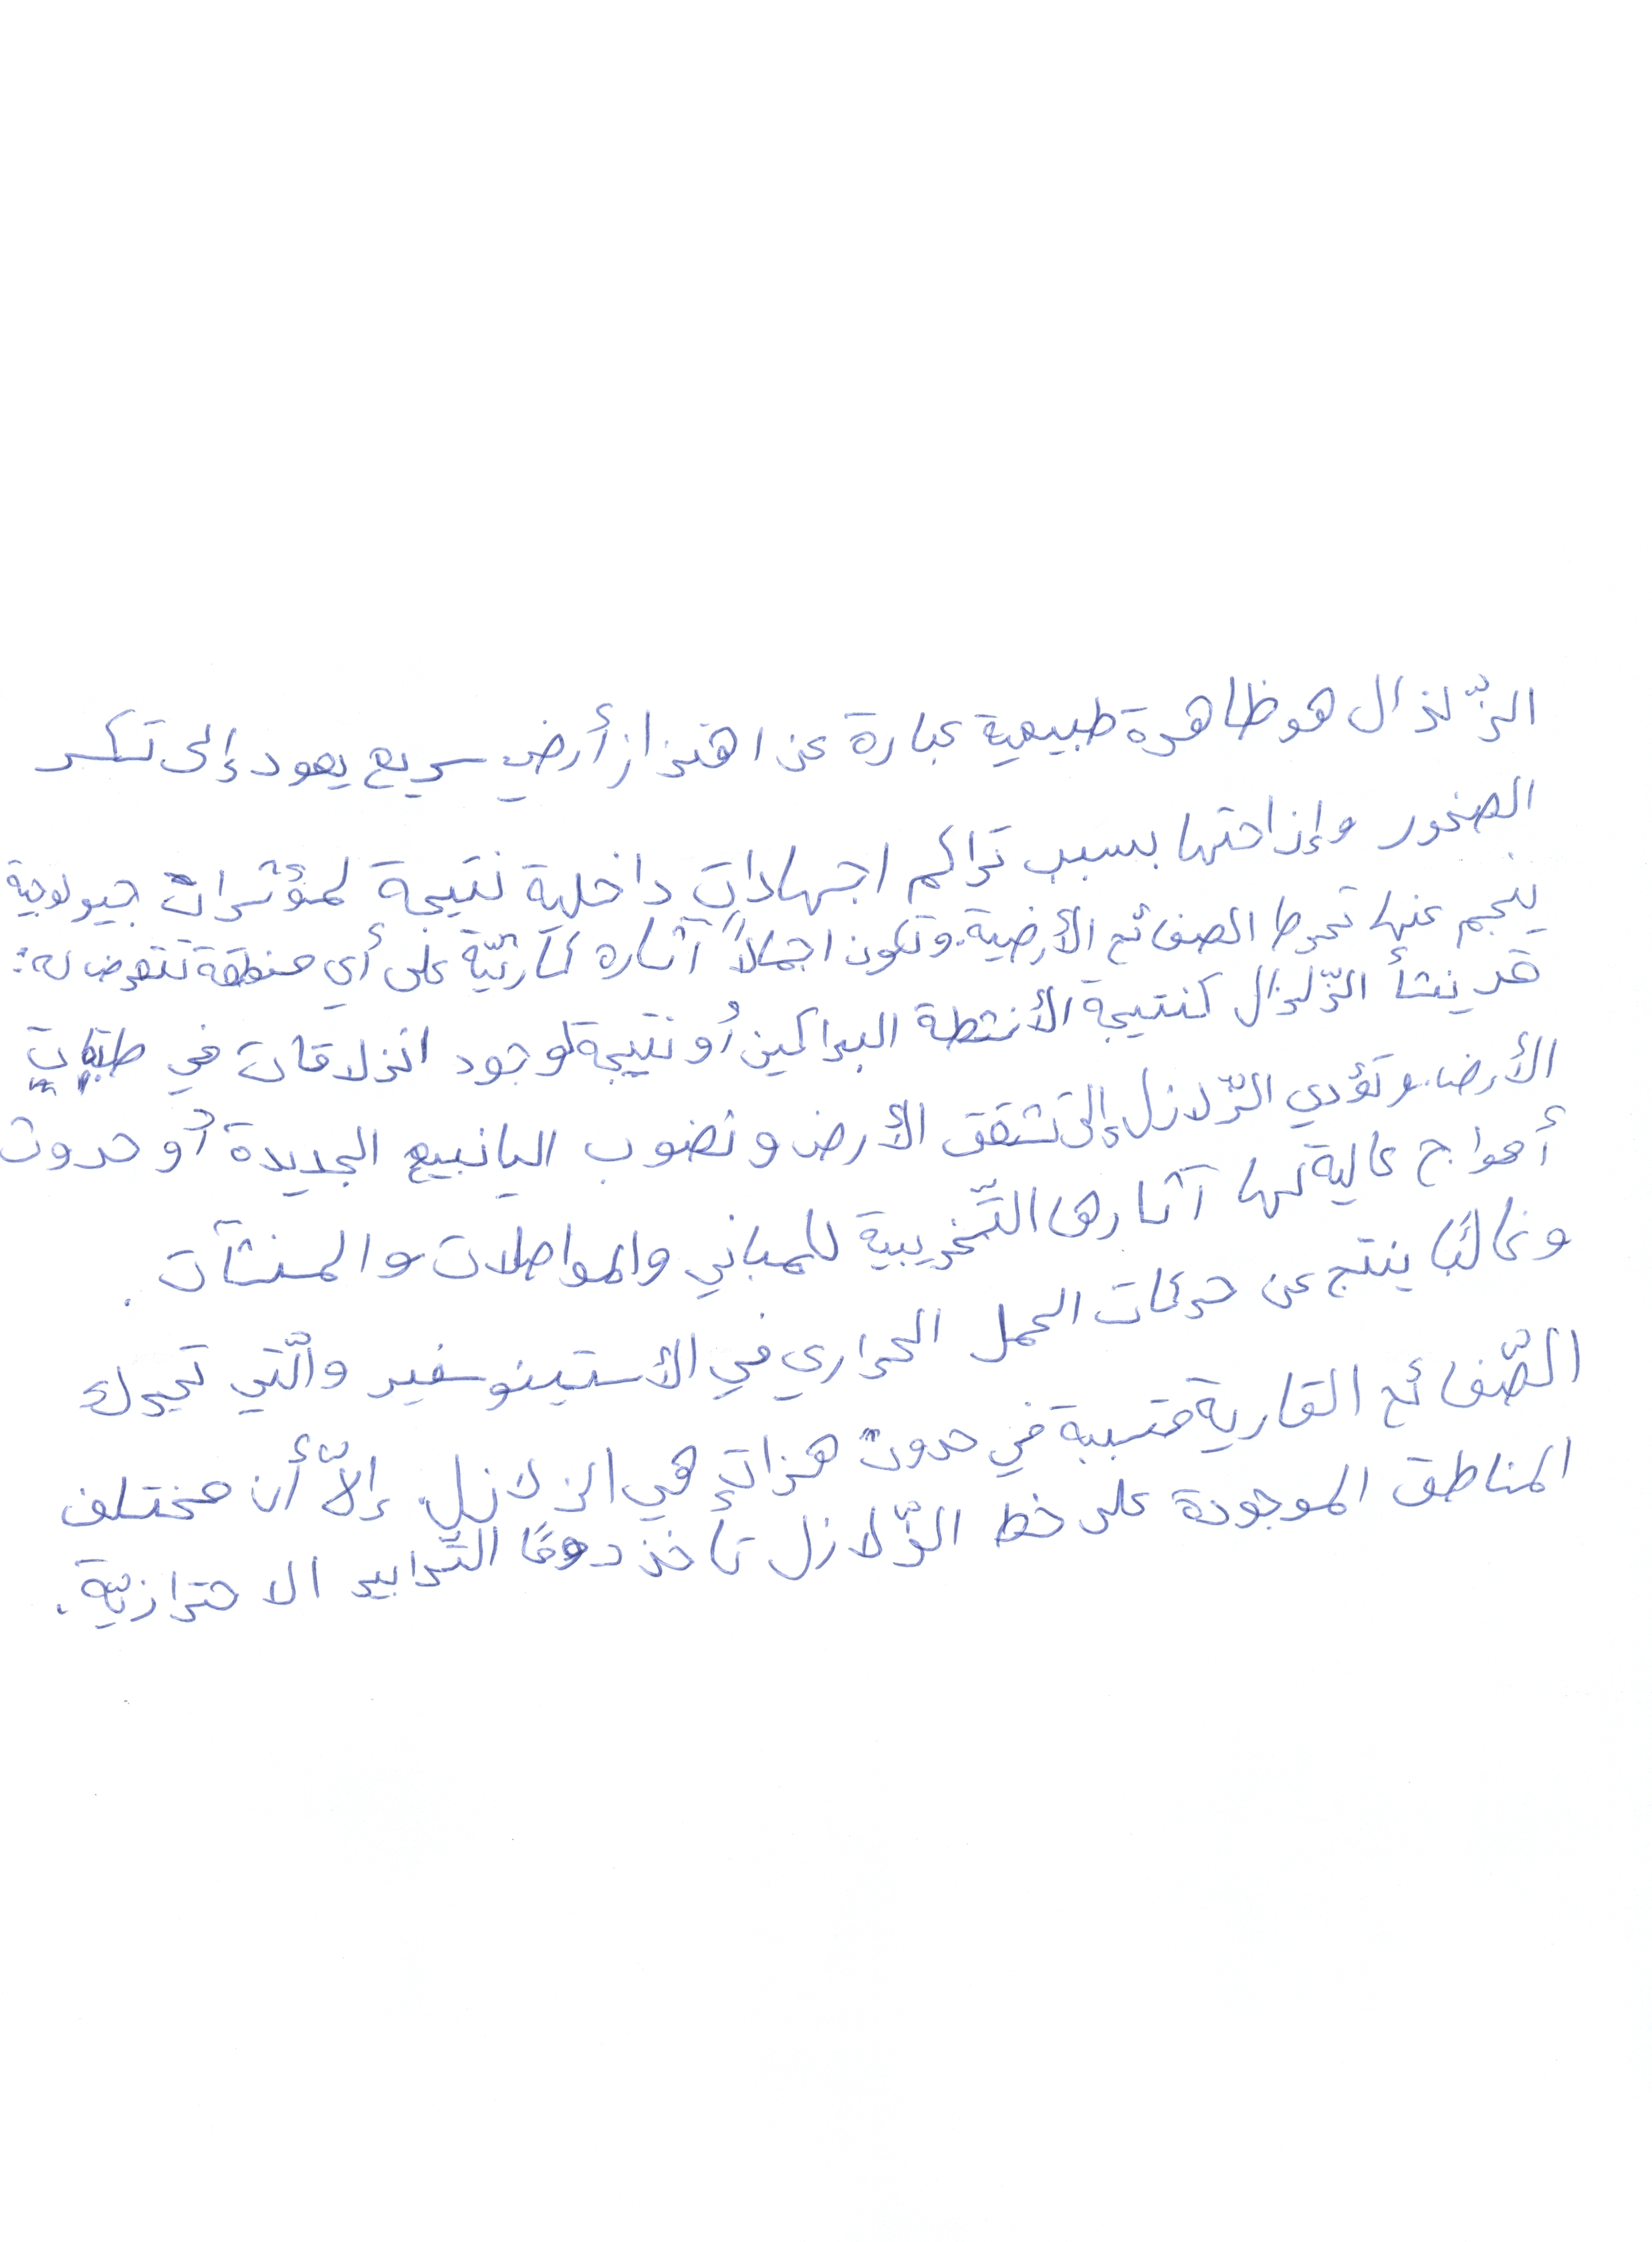 الزّلزال هو ظاهرة طبيعية عبارة عن اهتزاز أرضي سريع يعود إلى تكسر
الصخور وإزاحتها بسبب تراكم اجهاداتٍ داخلية نتيجة لمؤثرات جيولوجية
ينجم عنها تحرك الصفائح الأرضية. وتكون اجمالاً آثاره كارثيّة على أي منطقة تتعرض له:
قد ينشأ الزّلزال كنتيجة الأنشطة البراكين أو نتيجة لوجود انزلاقات في طبقات
الأرض. وتؤدي الزّلازل إلى تشقق الأرض ونضوب اليانبيع الجديدة أو حدوث
أمواج عالية لها آثارها التّخريبية للمباني والمواصلات والمنشآت.
وغالبًا ينتج عن حركات الحمل الحراري في الأستينوسفير والّتي تحرك
الصّفائح القارية متسببة في حدوث هزات هي الزلازل. إلاّ أن مختلف
المناطق الموجودة على خط الزّلازل تأخذ دومًا التّدابير الاحترازيّة.